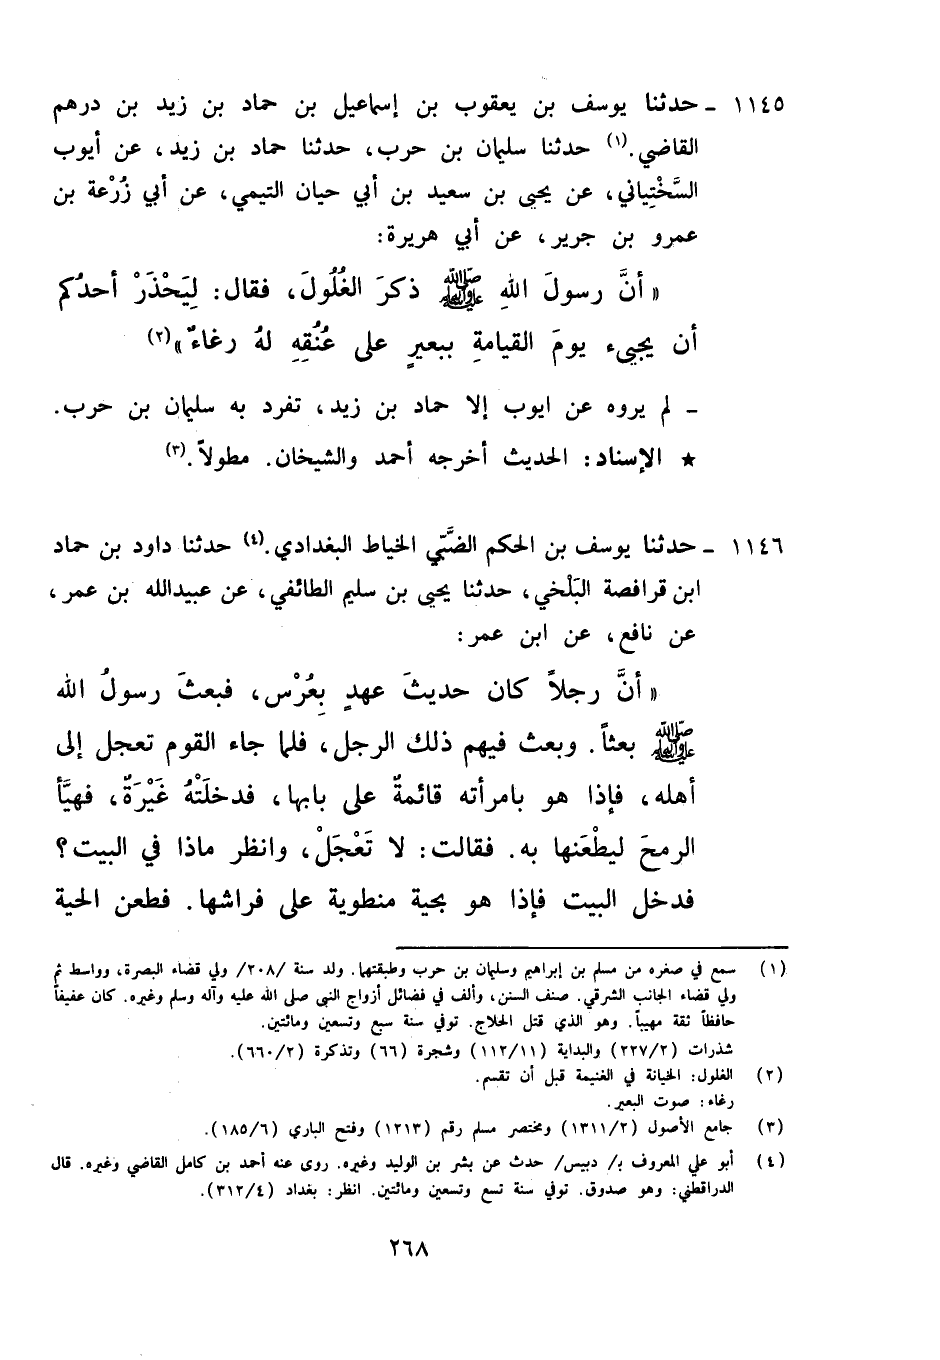 ١١٤٥ ـ حدثنا يوسف بن يعقوب بن إسماعيل بن حماد بن زيد بن درهم
القاضي.(١) حدثنا سليمان بن حرب، حدثنا حماد بن زيد، عن أيوب
السَّخْتِياني، عن يحيى بن سعيد بن أبي حيان التيمي، عن أبي زُرْعة بن
عمرو بن جرير، عن أبي هريرة:
« أنَّ رسولَ اللهِ ﷺ ذكرَ الغُلُولَ، فقال: لِيَحْذَرْ أحدُكم
أن يجيىء يومَ القيامةِ ببعيرٍ على عُنُقِهِ لهُ رغاءٌ»(٢)
ـ لم يروه عن ايوب إلا حماد بن زيد، تفرد به سليمان بن حرب.
★ الإسناد: الحديث أخرجه أحمد والشيخان. مطولاً.(٣)
١١٤٦ ـ حدثنا يوسف بن الحكم الضَّبّي الخياط البغدادي.(٤) حدثنا داود بن حماد
ابن قرافصة البَلْخي، حدثنا يحيى بن سليم الطائفي، عن عبيدالله بن عمر،
عن نافع، عن ابن عمر:
« أنَّ رجلاً كان حديثَ عهدٍ بِعُرْس، فبعثَ رسولُ الله
ﷺ بعثاً. وبعث فيهم ذلك الرجل، فلما جاء القوم تعجل إلى
أهله، فإذا هو بامرأته قائمةٌ على بابها، فدخلَتْهُ غَيْرَةٌ، فهيَّأ
الرمحَ ليطْعَنها به. فقالت: لا تَعْجَلْ، وانظر ماذا في البيت؟
فدخل البيت فإذا هو بحية منطوية على فراشها. فطعن الحية
(١) سمع في صغره من مسلم بن إبراهيم وسليمان بن حرب وطبقتهما. ولد سنة /٢٠٨/ ولي قضاء البصرة، وواسط ثم
ولي قضاء الجانب الشرقي. صنف السنن، وألف في فضائل أزواج النبي صلى الله عليه وآله وسلم وغيره. كان عفيفاً
حافظاً ثقة مهيباً. وهو الذي قتل الحلاج. توفي سنة سبع وتسعين ومائتين.
شذرات (٢٢٧/٢) والبداية (١١٢/١١) وشجرة (٦٦) وتذكرة (٦٦٠/٢).
(٢) الغلول: الخيانة في الغنيمة قبل أن تقسم.
رغاء: صوت البعير.
(٣) جامع الأصول (١٣١١/٢) ومختصر مسلم رقم (١٢١٣) وفتح الباري (١٨٥/٦).
(٤) أبو علي المعروف بـ/ دبيس/ حدث عن بشر بن الوليد وغيره. روى عنه أحمد بن كامل القاضي وغيره. قال
الدراقطني: وهو صدوق. توفي سنة تسع وتسعين ومائتين. انظر: بغداد (٣١٢/٤).
٢٦٨